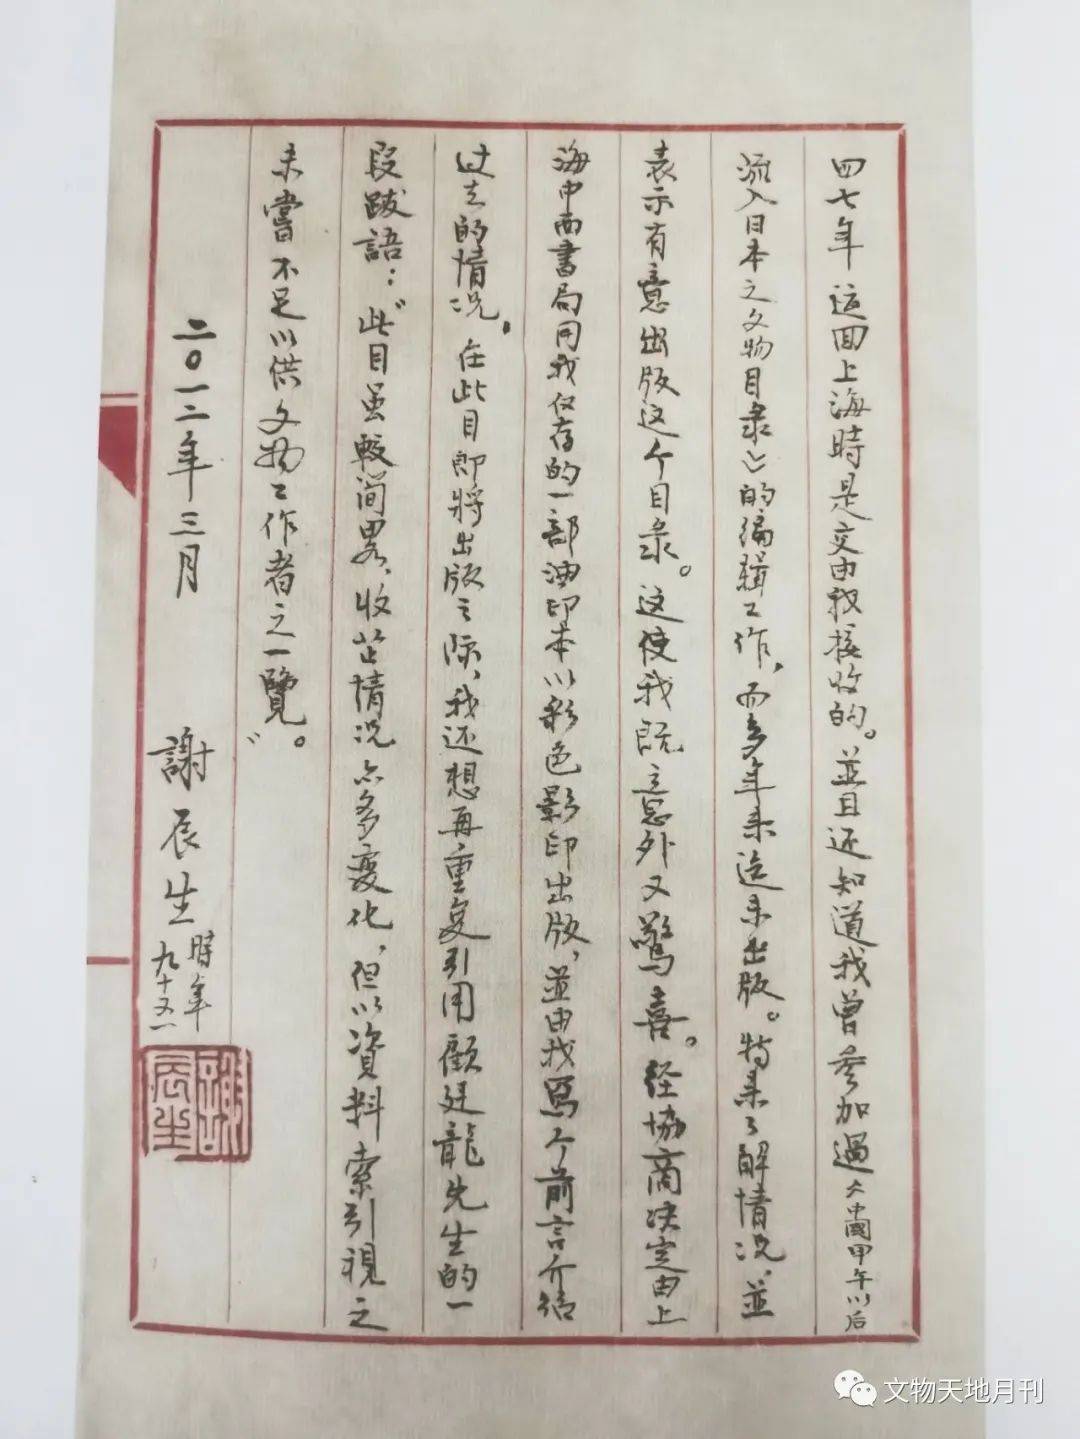 四七年运回上海時是交由我接收的。並且还知道我曾参加過《中國甲午以后
流入日本之文物目录》的编辑工作，而多年来迄未出版。特来了解情况，並
表示有意出版这个目录。这使我既意外又驚喜。经協商决定由上
海中西書局用我仅存的一部油印本以彩色影印出版，並由我寫个前言介绍
过去的情况。在此目即將出版之际，我还想再重复引用顧廷龍先生的一
段跋語：“此目虽較简畧，收芷情况亦多变化，但以資料索引視之
未嘗不足以供文物工作者之一覽”。
二〇一二年三月
謝辰生時年
九十又一
謝辰生
文物天地月刊